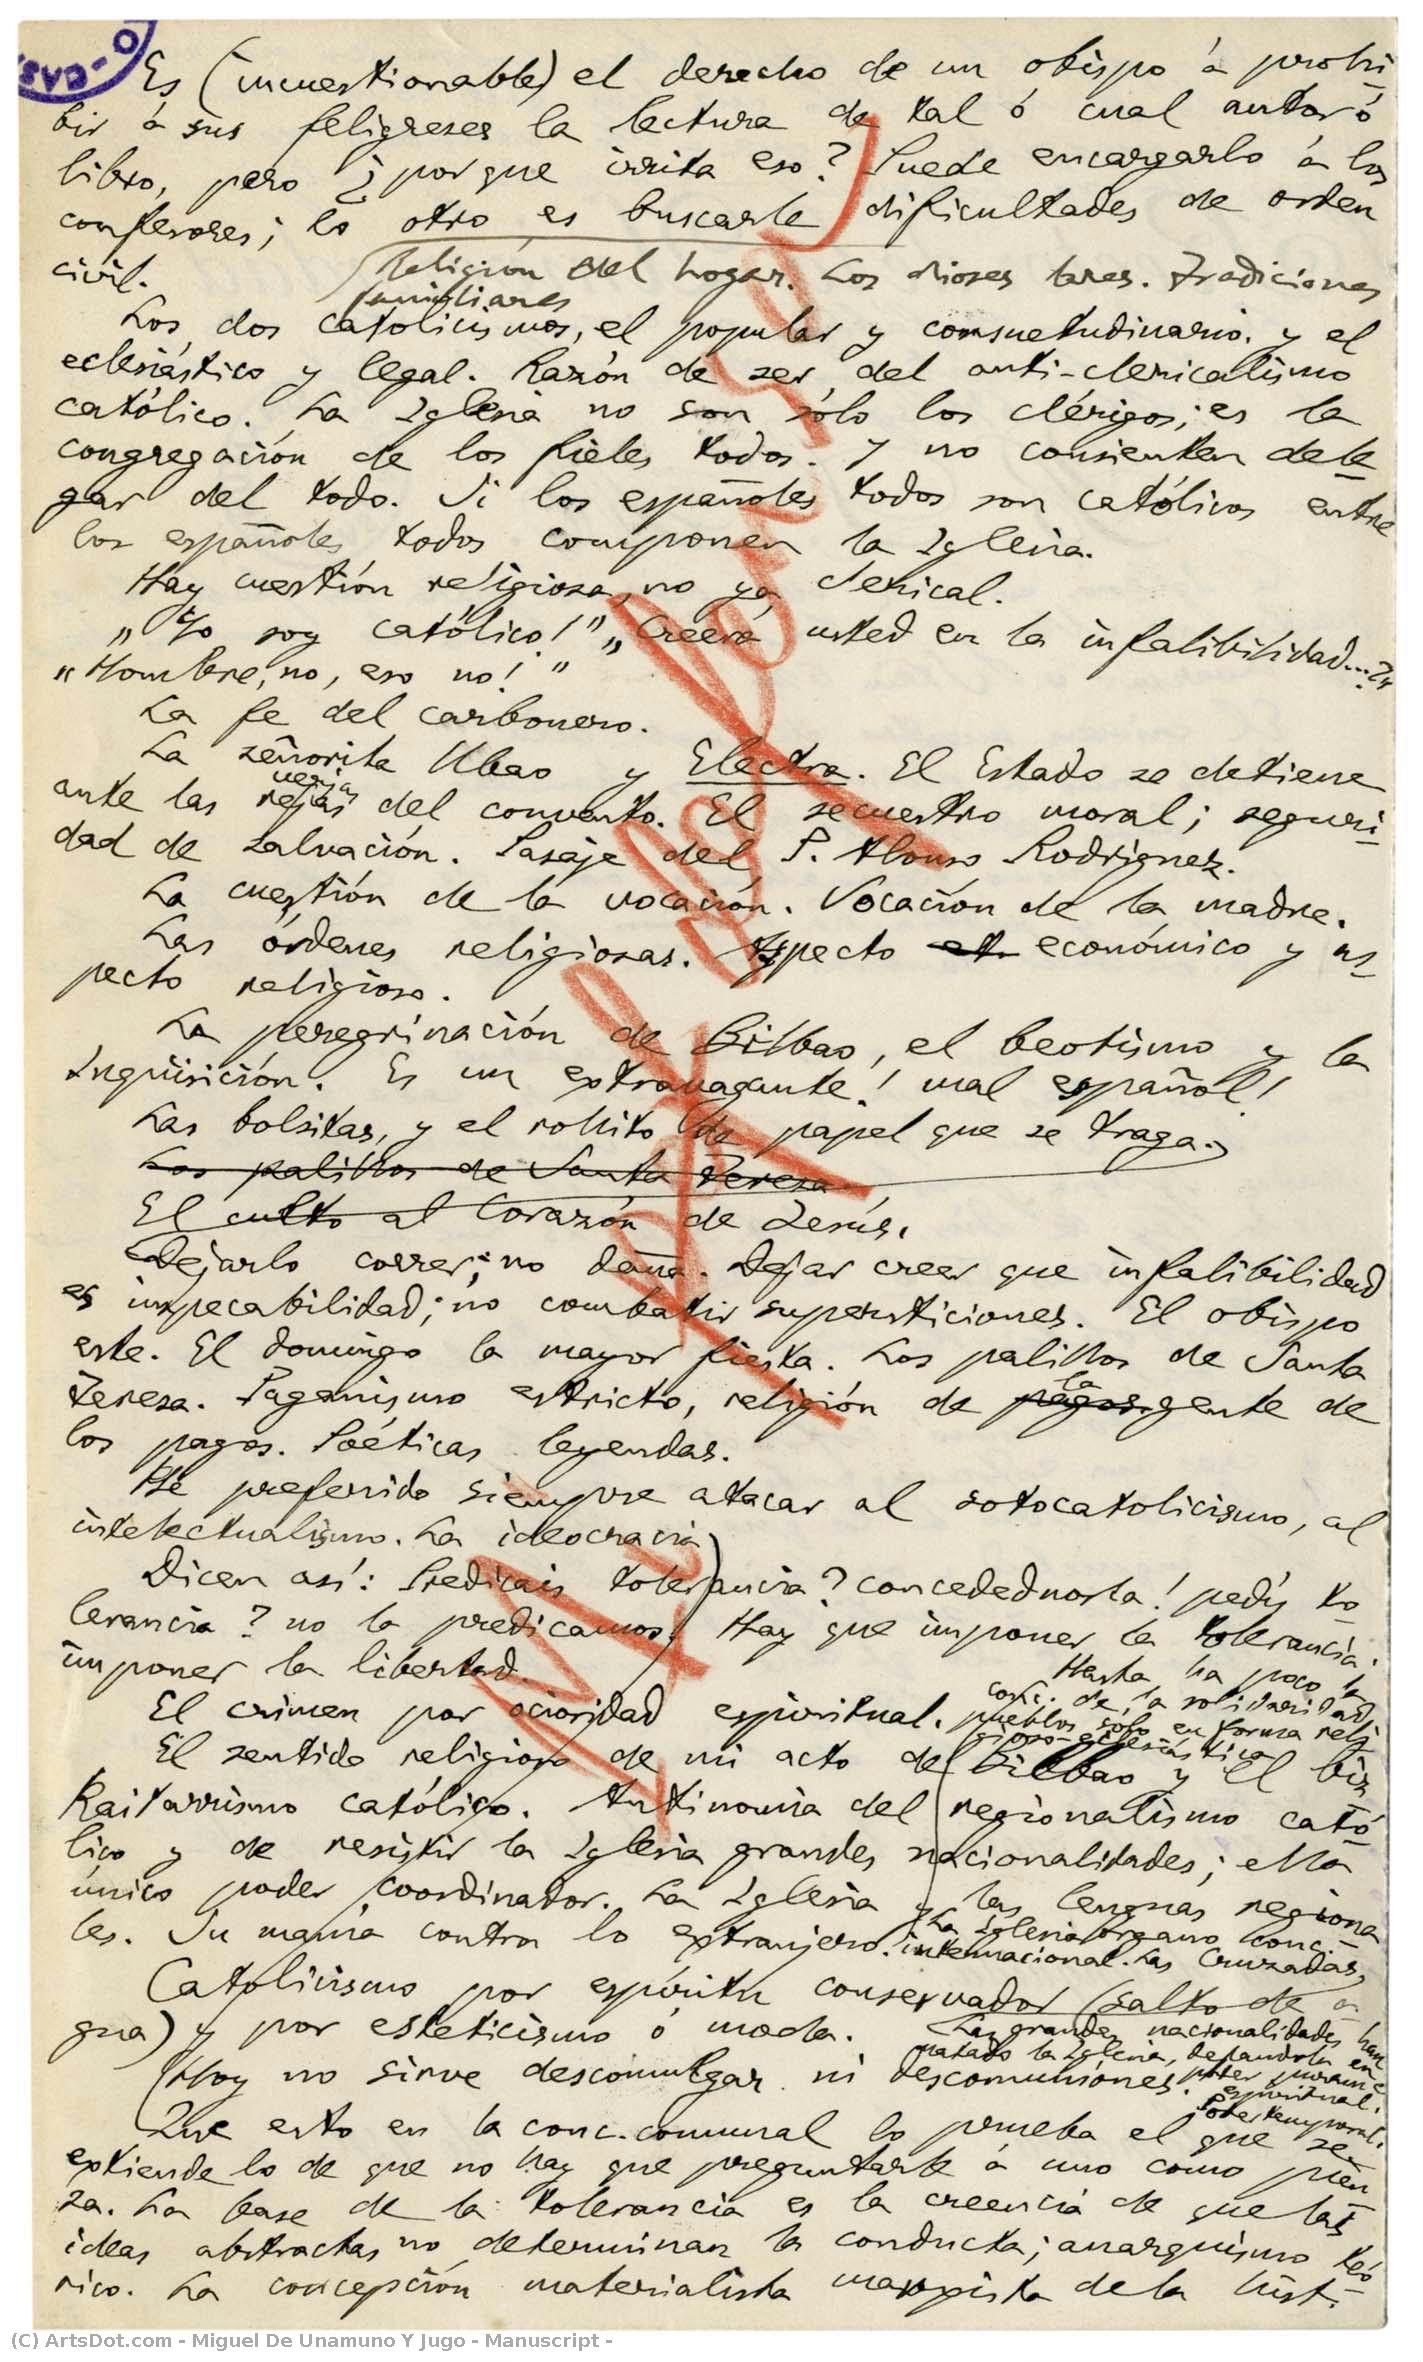 O-CAS
Es (incuestionable) el derecho de un obispo á prohi-
bir á sus feligreses la lectura de tal ó cual autor ó
libro, pero ¿porque irrita eso? Puede encargarlo á los
confesores; lo otro es buscarle dificultades de orden
civil.
Religion del hogar. Los dioses lares. Tradiciones
familiares
Los dos catolicismos, el popular y consuetudinario. y el
eclesiástico y legal. Razón de ser del anti-clericalismo
católico. La Iglesia no son sólo los clérigos; es la
congregación de los fieles todos. Y no consienten dele-
gar del todo. Si los españoles todos son católicos entre
los españoles todos componen la Iglesia.
Hay cuestión religiosa, no ya clerical.
„Yo soy católico!" „Creerá usted en la infalibilidad...?"
"Hombre, no, eso no!"
La fe del carbonero.
La señorita Ubao y Electra. El Estado se detiene
verjas
ante las rejas del convento. El secuestro moral; seguri-
dad de salvación. Pasaje del P. Alonso Rodriguez.
La cuestión de la vocación. Vocación de la madre.
Las órdenes religiosas. Aspecto et económico y as-
pecto religioso.
La peregrinación de Bilbao, el beotismo y la
Inquisición. Es un extravagante! mal español!
Las bolsitas, y el rollito de papel que se traga.
Los palillos de Santa Teresa
El culto al Corazón de Jesús.
Dejarlo correr; no daña. Dejar creer que infalibilidad
es impecabilidad; no combatir supersticiones. El obispo
este. El domingo la mayor fiesta. Los palillos de Santa
Teresa. Paganismo estricto, religión de pagos. la gente de
los pagos. Poéticas leyendas.
He preferido siempre atacar al sotocatolicismo, al
intelectualismo. La ideocracia
Dicen así: Predicais tolerancia? concedednosla! pedís to-
lerancia? no la predicamos. Hay que imponer la tolerancia.
imponer la libertad.
El crimen por ociosidad espiritual.
Hasta ha poco la
conc. de la solidaridad
pueblos solo en forma reli-
gioso-eclesiástica
El sentido religioso de mi acto de Bilbao y el biz-
kaitarrismo católico. Antinomia del regionalismo cató-
lico y de resistir la Iglesia grandes nacionalidades; ella
único poder coordinador. La Iglesia y las lenguas regiona-
les. Su manía contra lo extranjero.
La Iglesia órgano conc.
internacional. Las Cruzadas,
Catolicismo por espíritu conservador (salto de a-
gua) y por esteticismo ó moda.
Las grandes nacionalidades han
matado la Iglesia, dejandola en
poder puramte
espiritual.
Poder temporal.
(Hoy no sirve descomulgar ni descomuniones.
Que esto en la conc. comunal lo prueba el que se
extiende lo de que no hay que preguntarle á uno como pien-
sa. La base de la tolerancia es la creencia de que las
ideas abstractas no determinan la conducta; anarquismo teó-
rico. La concepción materialista marxista de la hist.
(C) ArtsDot.com - Miguel De Unamuno Y Jugo - Manuscript -